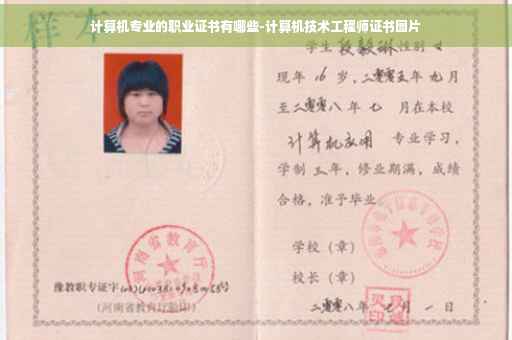 计算机专业的职业证书有哪些-计算机技术工程师证书图片
样本
学生段毅琳性别女
现年16岁，二零零五年九月
至二零零八年七 月在本校
计算机应用 专业学习，
学制三年，修业期满，成绩
合格，准予毕业
学校（章）
校长（章）
二零零八年 七 月 一 日
河南省教育厅
豫教职专证字
（河南省教育厅验印）